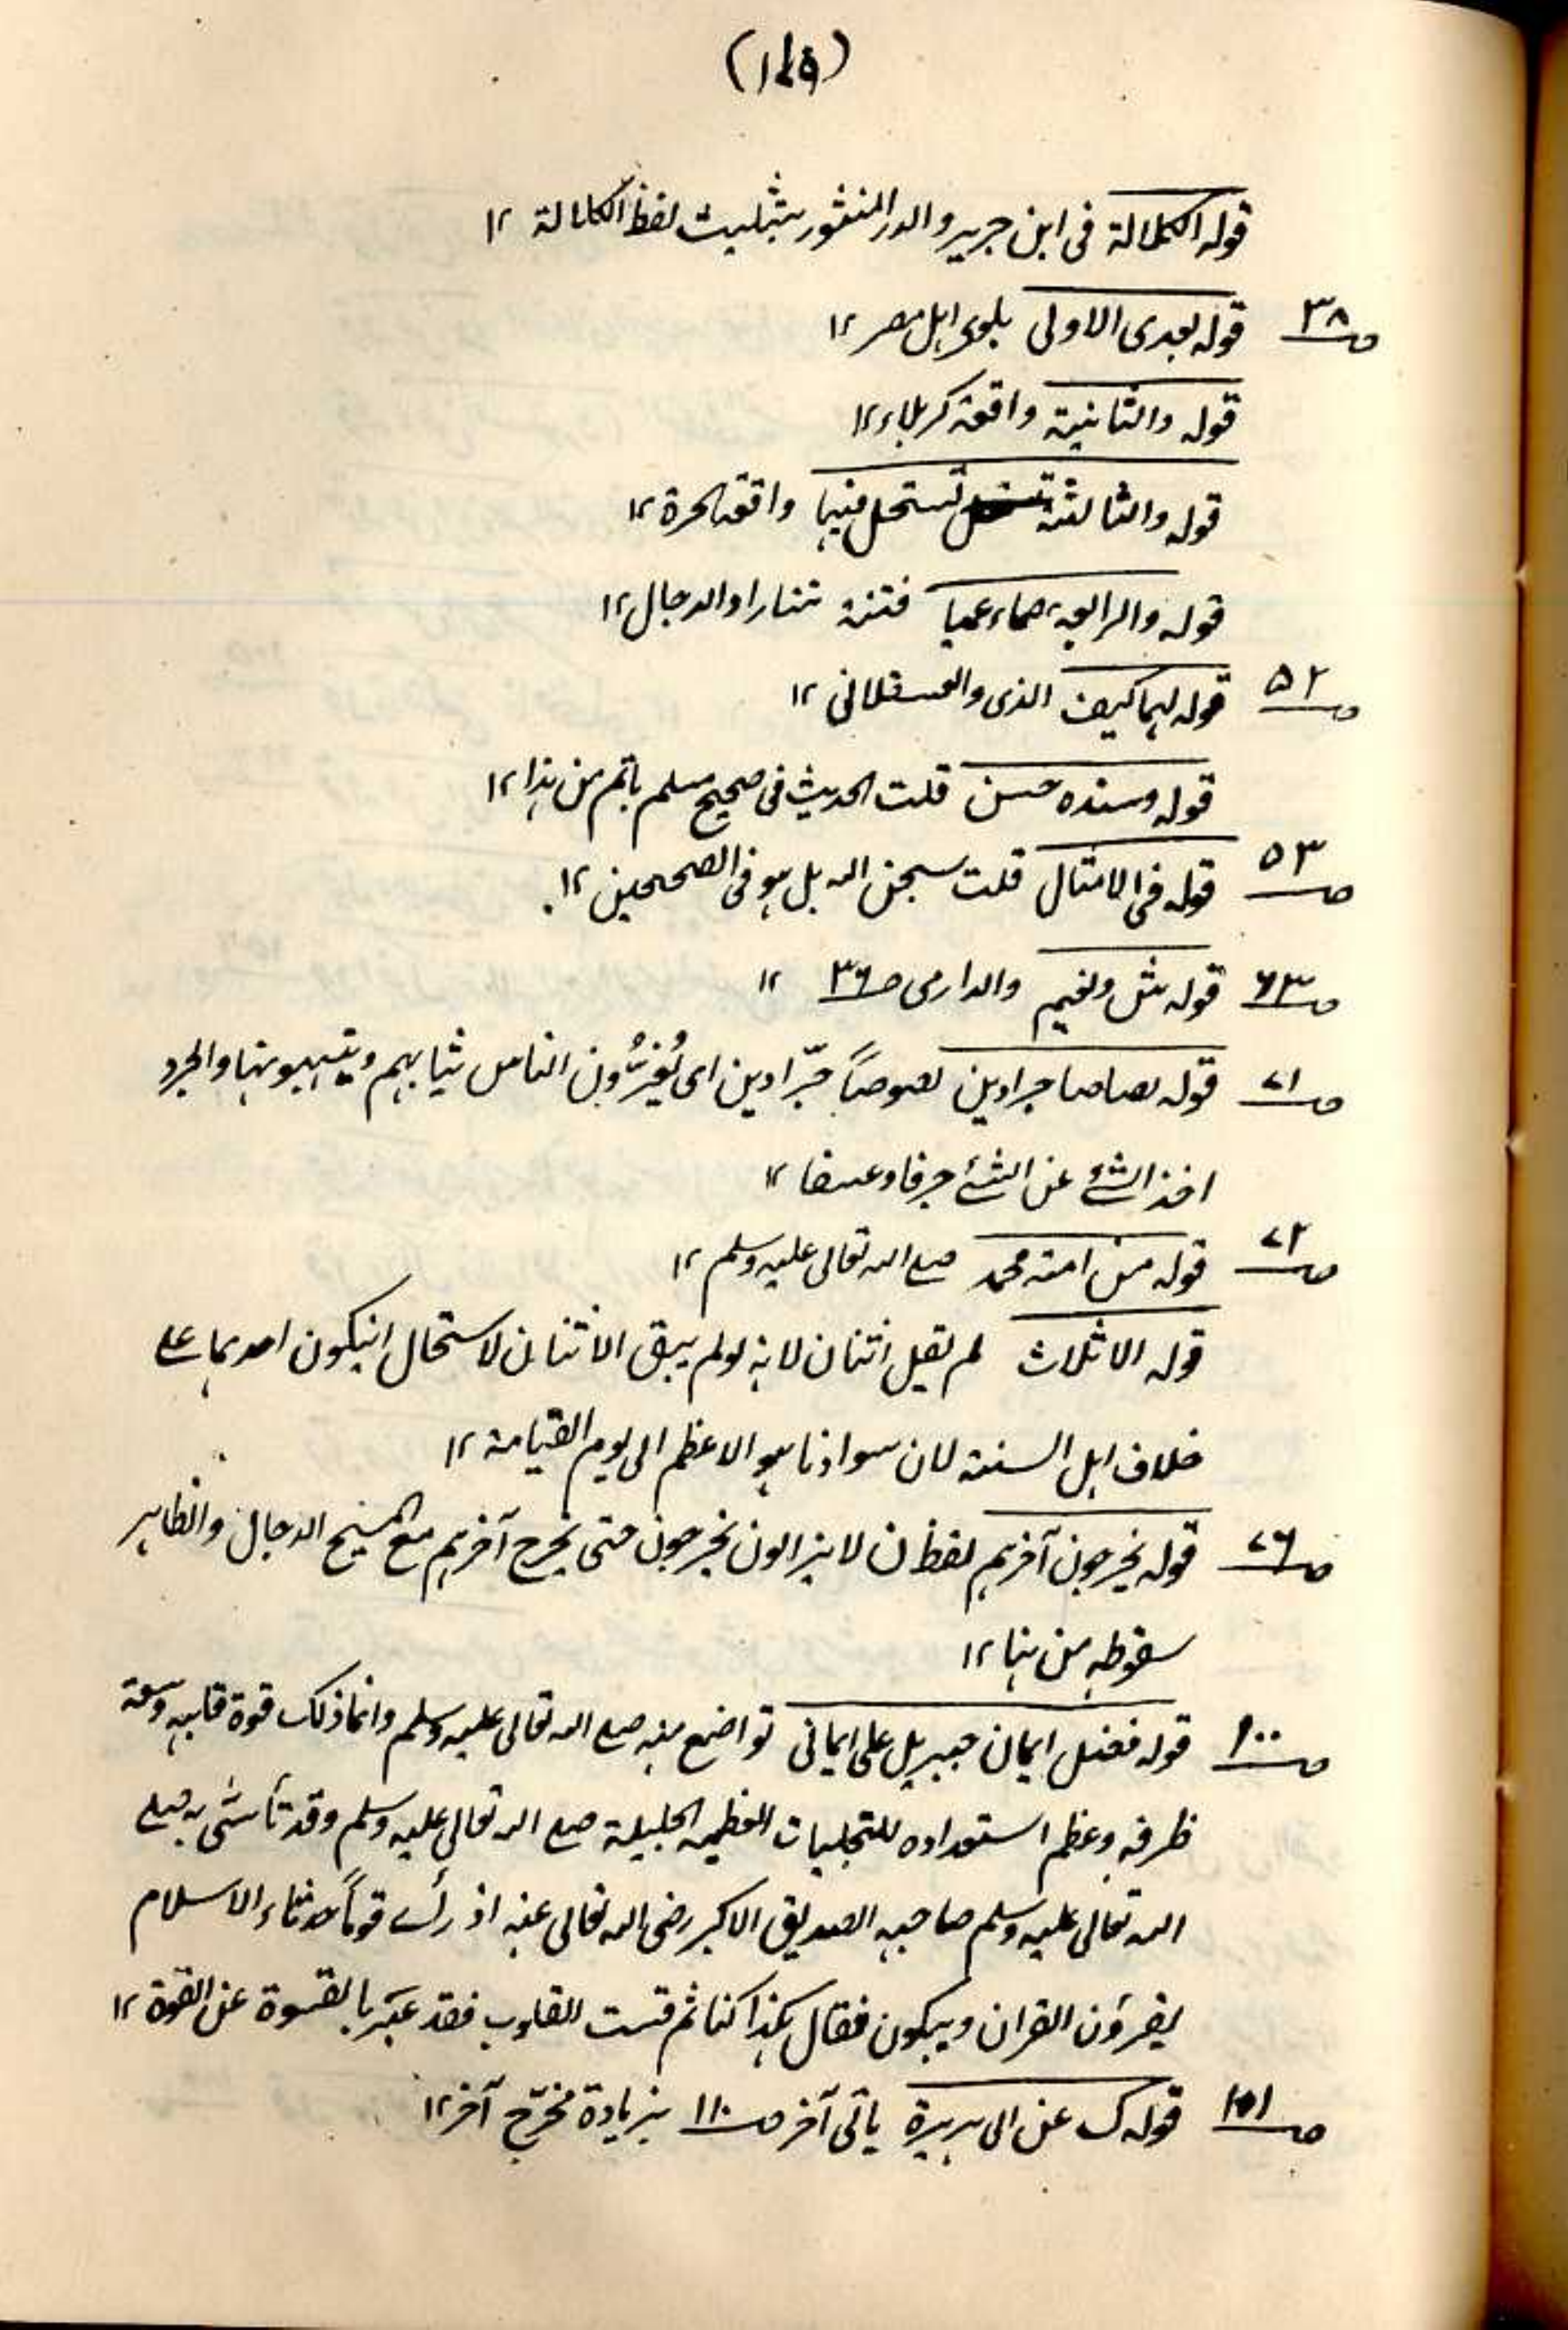 قوله الكلالة فى ابن جرير والدر المنثور بتثليث لفظ الكلالة ۱۲
صــ۳۸ قوله بعدى الاولى بلوى اهل مصر ۱۲
قوله والثانية واقعة كربلاء ۱۲
قوله والثالثة تستحل فيها واقعة الحرة ۱۲
قوله والرابعة صماء عميا فتنة تتارا والدجال ۱۲
صــ۵۲ قوله لهما كيف الذى والعسقلانى ۱۲
قوله وسنده حسن قلت الحديث فى صحيح مسلم باتم من هذا ۱۲
صــ۵۳ قوله فى الامثال قلت سبحن الله بل هو فى الصحيحين ۱۲
صــ۶۳ قوله ونعيم والدارمى صــ۳۶ ۱۲
صــ۷۱ قوله لصاصا جرادين لصوصاً جرّادين اى يُعَرُّون الناس ثيابهم وينهبونها والجرد
اخذ الشئ عن الشئ جرفا وعسفا ۱۲
صــ۷۲ قوله من امة محمد صلے الله تعالى عليه وسلم ۱۲
قوله الا ثلاث لم يقل اثنان لانه لو لم يبق الا ثنان لاستحال انيكون احدهما علے
خلاف اهل السنة لان سوادنا هو الاعظم الى يوم القيامة ۱۲
صــ۷۶ قوله يخرجون آخرهم لفظ ن لا يزالون يخرجون حتى يخرج آخرهم مع المسيح الدجال والظاهر
سقوطه من هنا ۱۲
صــ۱۰۰ قوله فضل ايمان جبريل على ايمانى تواضع منه صلے الله تعالى عليه وسلم وانما ذلك قوة قلبه وسعة
ظرفه وعظم استعداده للتجليات العظيمه الجليلة صلے الله تعالى عليه وسلم وقد تأسّى به صلے
الله تعالى عليه وسلم صاحبه الصديق الاكبر رضى الله تعالى عنه اذ رأے قوماً حدثاء الاسلام
يقرؤن القران ويبكون فقال هكذا كنا ثم قست القلوب فقد عبّر بالقسوة عن القوة ۱۲
صــ۱۰۱ قوله ك عن ابى هريرة ياتى آخر صــ۱۱۰ بزيادة مخرّج آخر ۱۲